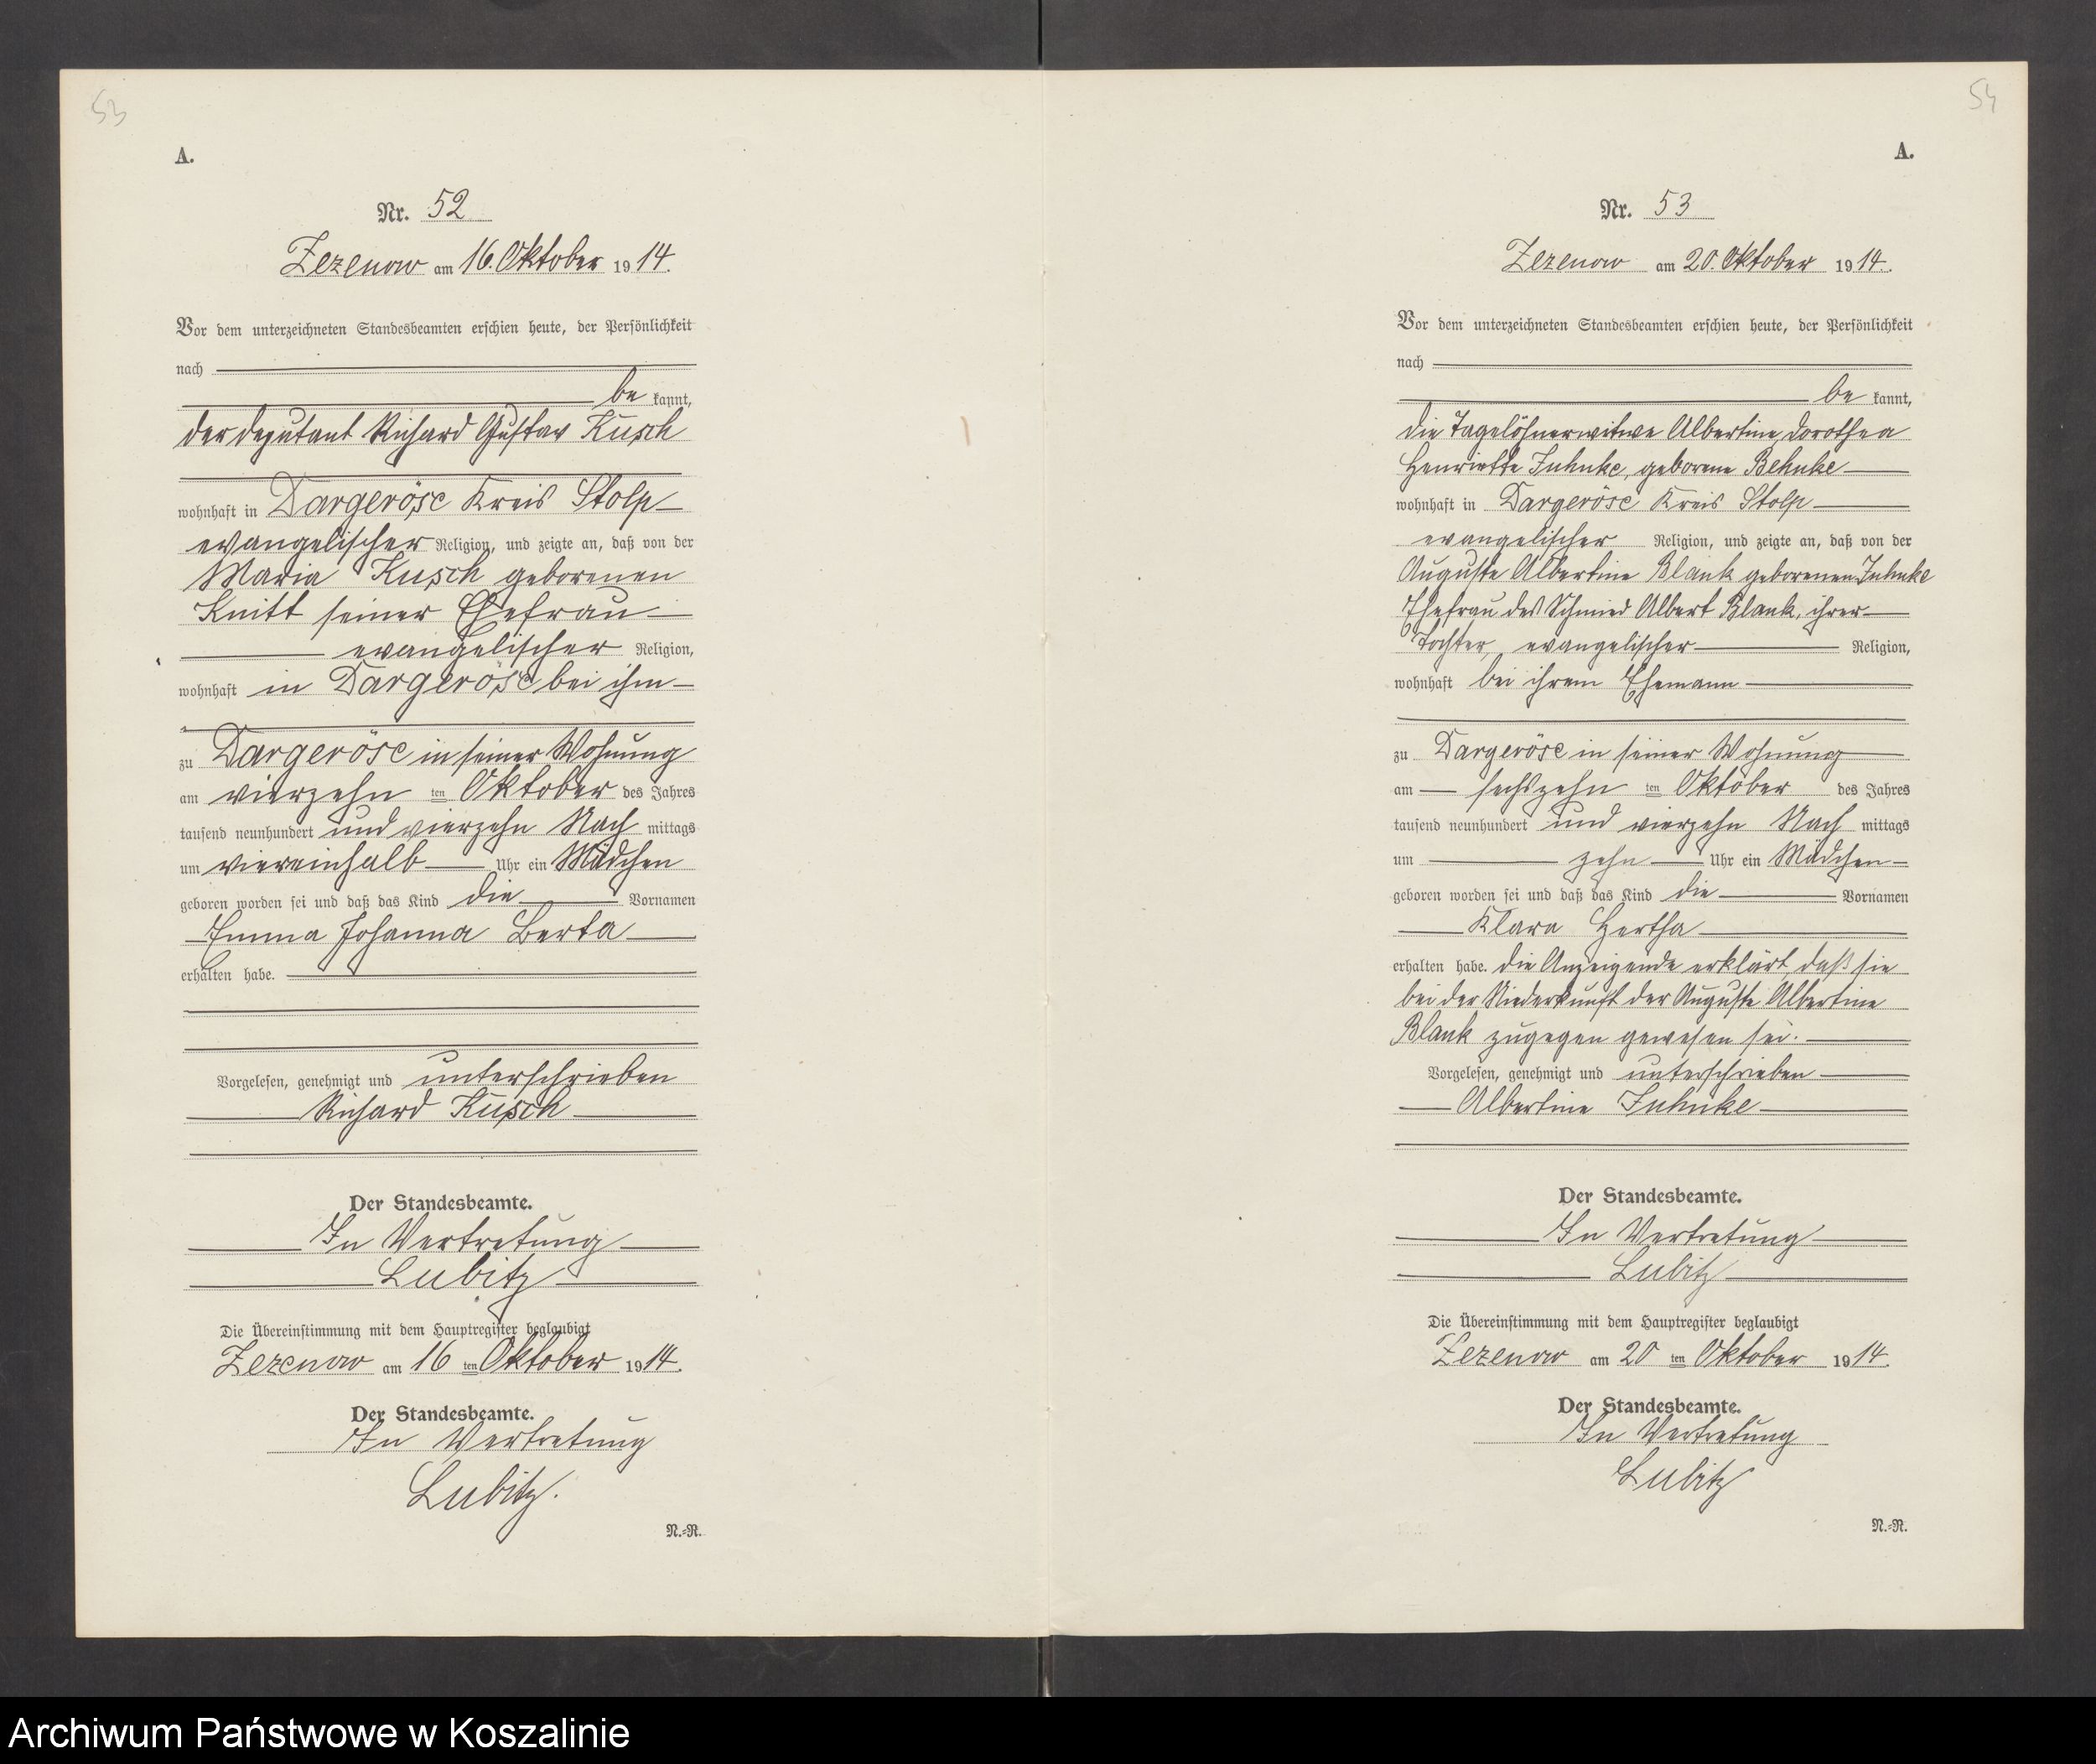 53
A.
Nr. 52
Zezenow am 16. Oktober 1914.
Vor dem unterzeichneten Standesbeamten erschien heute, der Persönlichkeit
nach
be kannt,
der Deputant Richard Gustav Kusch
wohnhaft in Dargeröse Kreis Stolp
evangelischer Religion, und zeigte an, daß von der
Maria Kusch geborenen
Knitt seiner Ehefrau
evangelischer Religion,
wohnhaft in Dargeröse bei ihm
zu Dargeröse in seiner Wohnung
am vierzehn ten Oktober des Jahres
tausend neunhundert und vierzehn Nach mittags
um viereinhalb Uhr ein Mädchen
geboren worden sei und daß das Kind die Vornamen
Emma Johanna Berta
erhalten habe.
Vorgelesen, genehmigt und unterschrieben
Richard Kusch
Der Standesbeamte.
In Vertretung
Lubitz
Die Übereinstimmung mit dem Hauptregister beglaubigt
Zezenow am 16 ten Oktober 1914.
Der Standesbeamte.
In Vertretung
Lubitz.
N.-R.
54
A.
Nr. 53
Zezenow am 20. Oktober 1914.
Vor dem unterzeichneten Standesbeamten erschien heute, der Persönlichkeit
nach
be kannt,
die Tagelöhnerwitwe Albertine Dorothea
Henriette Juhnke, geborene Behnke
wohnhaft in Dargeröse Kreis Stolp
evangelischer Religion, und zeigte an, daß von der
Auguste Albertine Blank geborenen Juhnke
Ehefrau des Schmied Albert Blank, ihrer
Tochter, evangelischer Religion,
wohnhaft bei ihrem Ehemann
zu Dargeröse in seiner Wohnung
am sechszehn ten Oktober des Jahres
tausend neunhundert und vierzehn Nach mittags
um zehn Uhr ein Mädchen
geboren worden sei und daß das Kind die Vornamen
Klara Hertha
erhalten habe. Die Anzeigende erklärt, daß sie
bei der Niederkunft der Auguste Albertine
Blank zugegen gewesen sei.
Vorgelesen, genehmigt und unterschrieben
Albertine Juhnke
Der Standesbeamte.
In Vertretung
Lubitz
Die Übereinstimmung mit dem Hauptregister beglaubigt
Zezenow am 20 ten Oktober 1914.
Der Standesbeamte.
In Vertretung
Lubitz
N.-R.
Archiwum Państwowe w Koszalinie